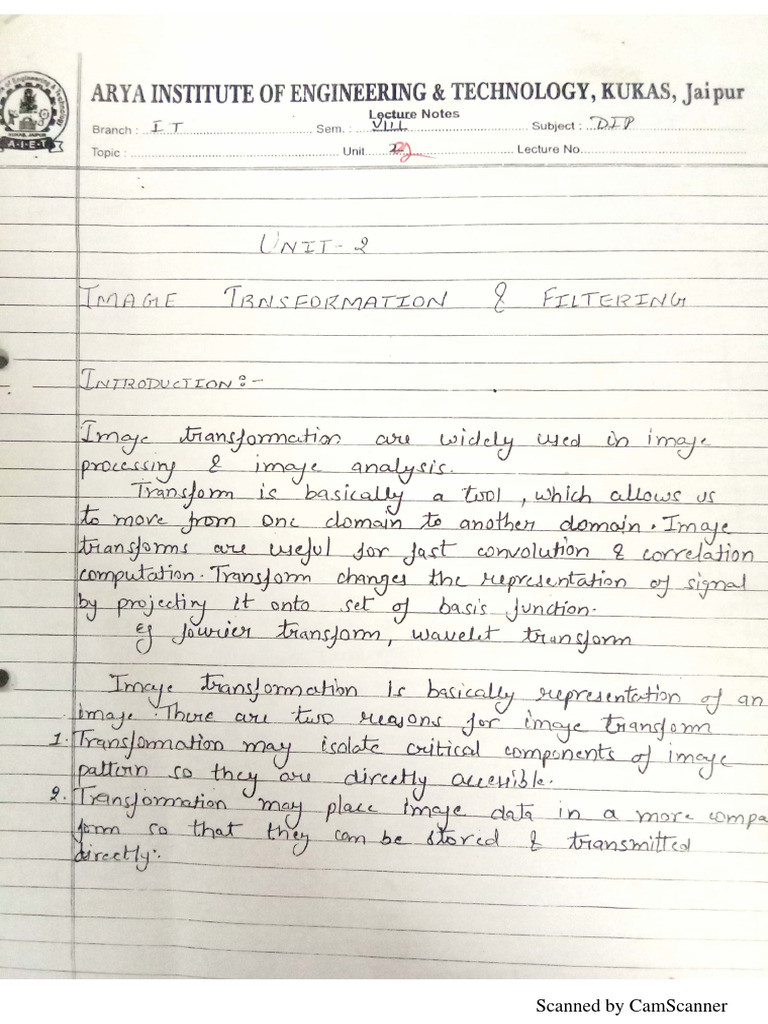 ARYA INSTITUTE OF ENGINEERING & TECHNOLOGY, KUKAS, Jaipur
Lecture Notes
Branch : IT Sem. : VIII Subject : DIP
Topic : Unit 2 Lecture No.
A-I-E-T
UNIT-2
IMAGE TRNSFORMATION & FILTERING
INTRODUCTION:-
Image transformation are widely used in image
processing & image analysis.
Transform is basically a tool, which allows us
to move from one domain to another domain. Image
transforms are useful for fast convolution & correlation
computation. Transform changes the representation of signal
by projecting it onto set of basis function.
eg fourier transform, wavelet transform
Image transformation is basically representation of an
image. There are two reasons for image transform
1. Transformation may isolate critical components of image
pattern so they are directly accessible.
2. Transformation may place image data in a more compa
form so that they can be stored & transmitted
directly.
Scanned by CamScanner